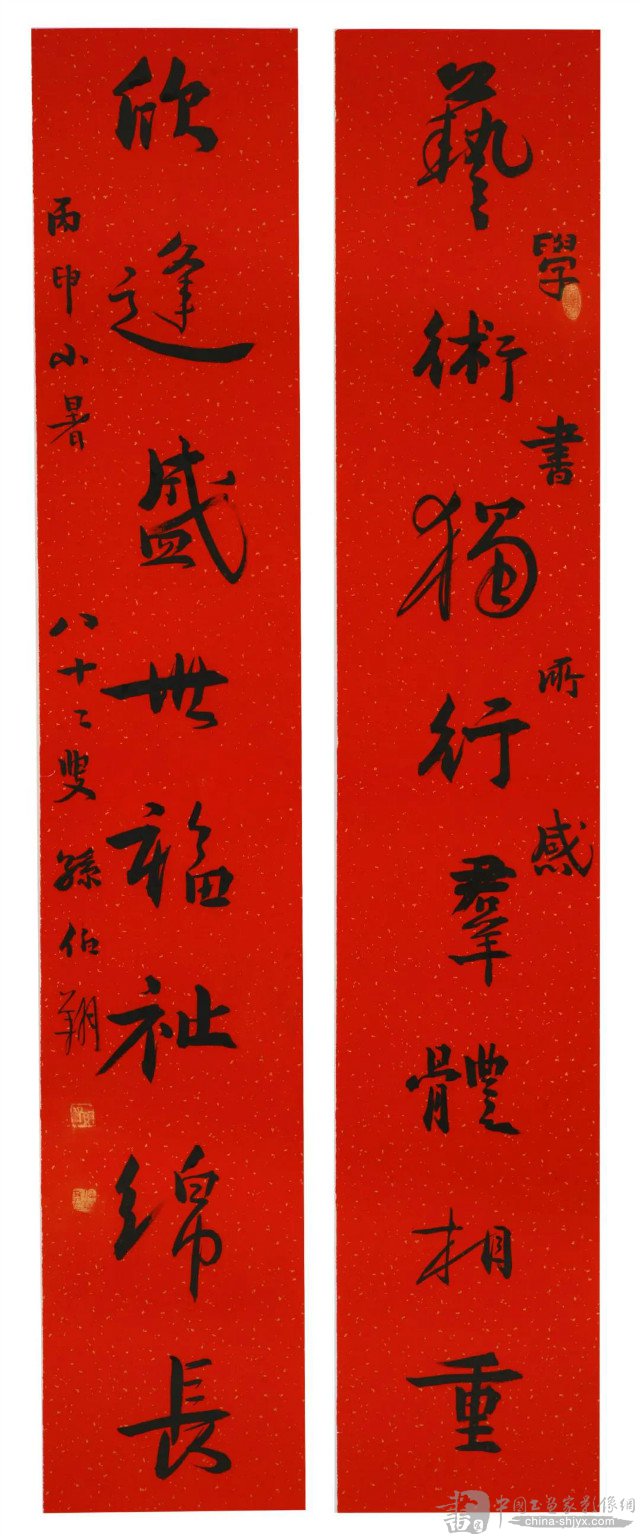 學書所感
藝術獨行羣體相重
欣逢盛世福祉綿長
丙申小暑 八十二叟 孫伯翔
中國书画家影像網
china-shjyx.com